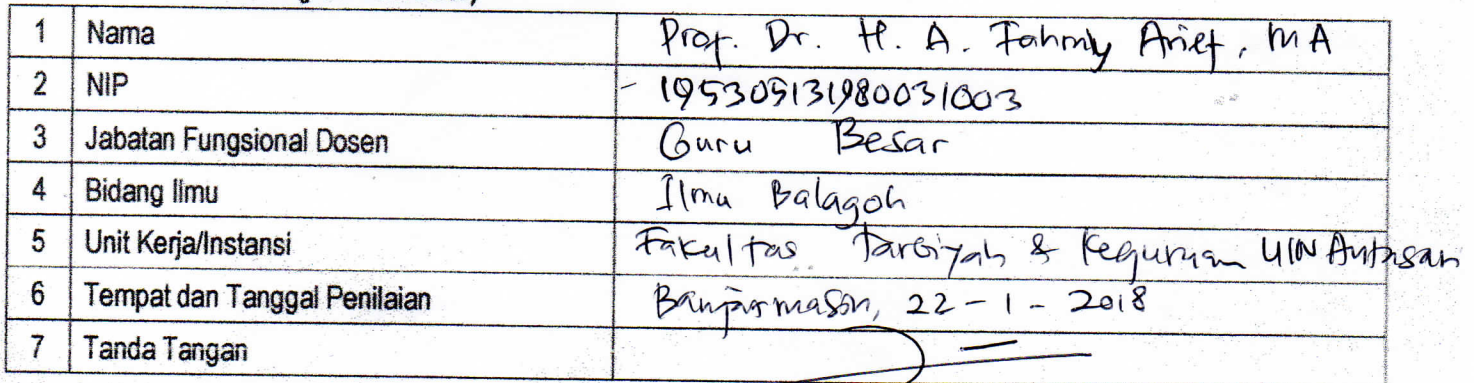 1 Nama Prof. Dr. H. A. Fahmiy Arief, MA
2 NIP - 195305131980031003
3 Jabatan Fungsional Dosen Guru Besar
4 Bidang Ilmu Ilmu Balagoh
5 Unit Kerja/Instansi Fakultas Tarbiyah & Keguruan UIN Antasari
6 Tempat dan Tanggal Penilaian Banjarmasin, 22 - 1 - 2018
7 Tanda Tangan